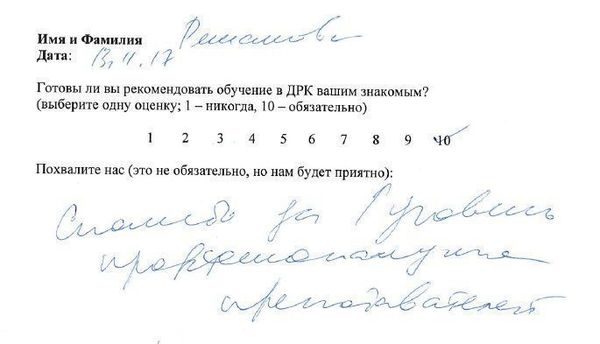 Имя и Фамилия
Дата: 13.11.17
Готовы ли вы рекомендовать обучение в ДРК вашим знакомым?
(выберите одну оценку; 1 – никогда, 10 – обязательно)
1 2 3 4 5 6 7 8 9 10
Похвалите нас (это не обязательно, но нам будет приятно):
Спасибо за уровень
профессионализма
преподавателей